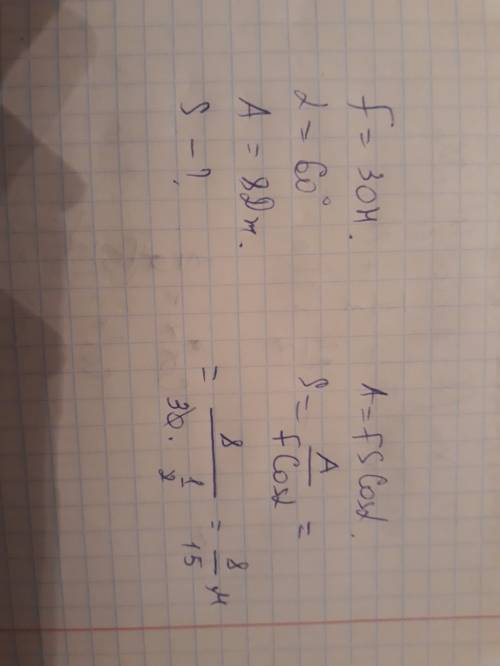 f = 30H.
α = 60°
A = 8Дж.
S - ?
A = f S Cosα.
S = A / f Cosα =
= 8 / 30 · 1/2 = 8/15 м